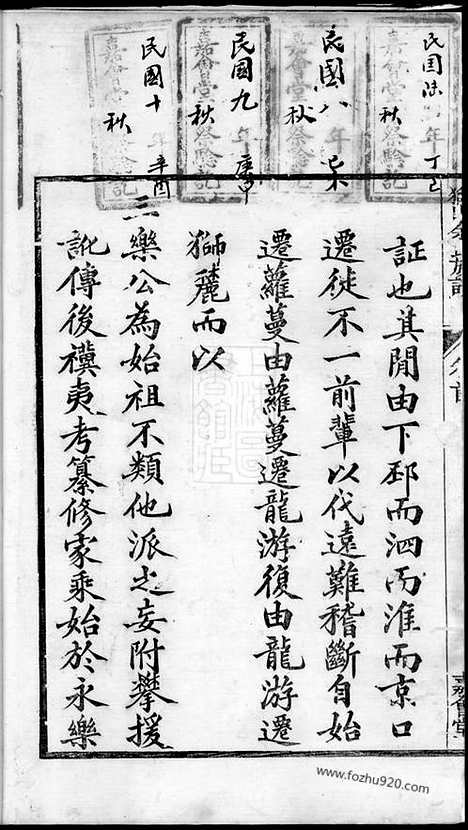 民國八年己未秋
嘉會堂祭驗記
民國九年庚申秋
嘉會堂秋祭驗記
民國十年辛酉秋
嘉會堂祭驗記
証也其間由下邳而泗而淮而京口
遷徙不一前輩以代遠難稽斷自始
遷蘿蔓由蘿蔓遷龍游復由龍游遷
獅麓而以
三樂公為始祖不類他派之妄附攀援
訛傳後禩夷考纂修家乘始於永樂
嘉會堂
www.fozhu920.com